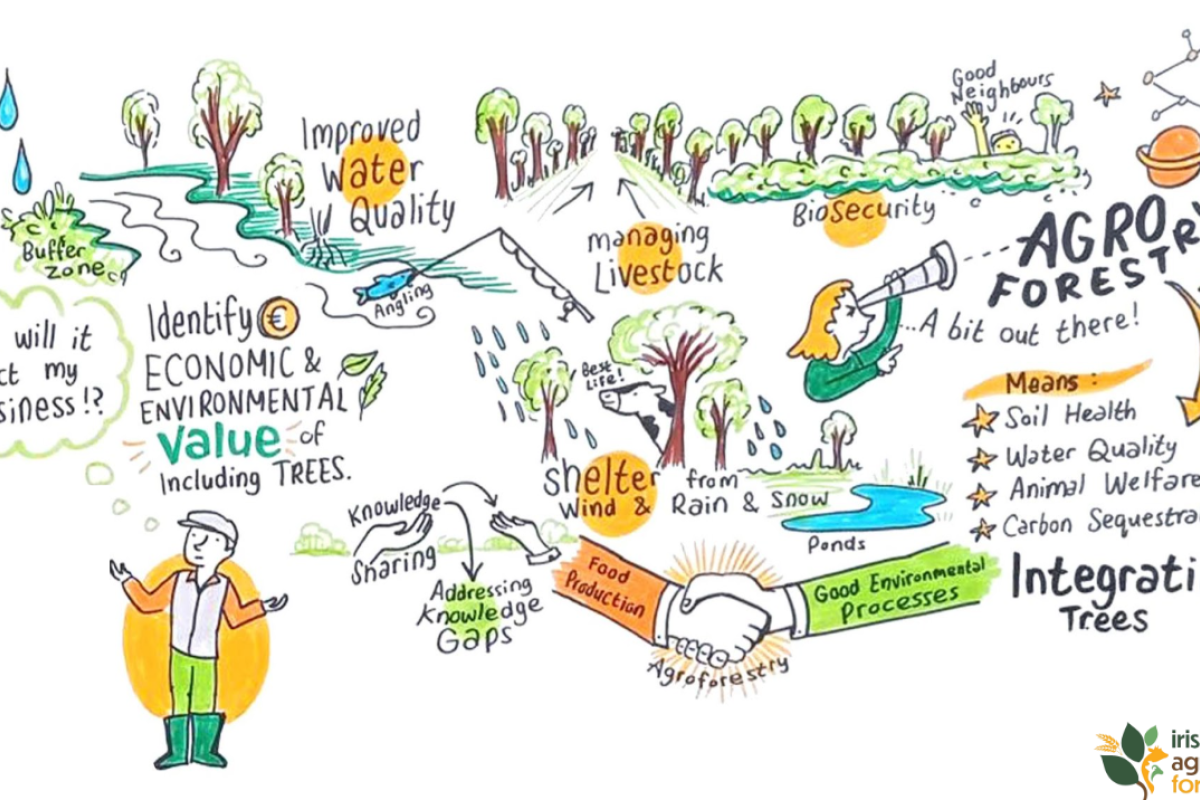 Improved
Water
Quality
Buffer
Zone
Angling
managing
Livestock
Good
Neighbours
Biosecurity
AGRO
FORESTRY
...A bit out there!
will it
my
!?
Identify €
ECONOMIC &
ENVIRONMENTAL
Value of
Including TREES.
Best
Life!
Shelter from
Wind & Rain & Snow
Ponds
Means:
Soil Health
Water Quality
Animal Welfare
Carbon Sequestra
Knowledge
Sharing
Addressing
Knowledge
Gaps
Food
Production
Good Environmental
Processes
Agroforestry
Integrati
Trees
iris
ag
for